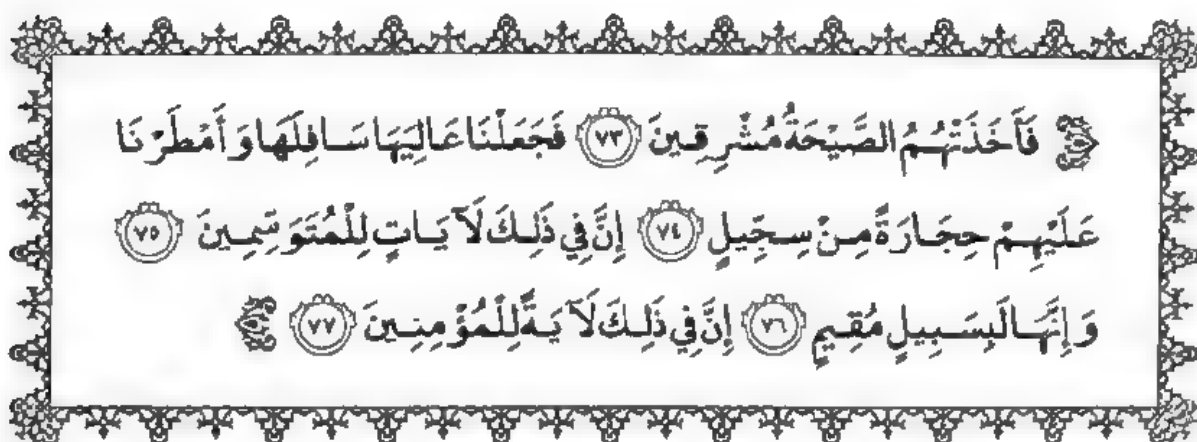 ﴿ فَأَخَذَتْهُمُ الصَّيْحَةُ مُشْرِقِينَ ٧٣ فَجَعَلْنَا عَالِيَهَا سَافِلَهَا وَأَمْطَرْنَا
عَلَيْهِمْ حِجَارَةً مِنْ سِجِّيلٍ ٧٤ إِنَّ فِي ذَلِكَ لَآيَاتٍ لِلْمُتَوَسِّمِينَ ٧٥
وَإِنَّهَا لَبِسَبِيلٍ مُقِيمٍ ٧٦ إِنَّ فِي ذَلِكَ لَآيَةً لِلْمُؤْمِنِينَ ٧٧ ﴾